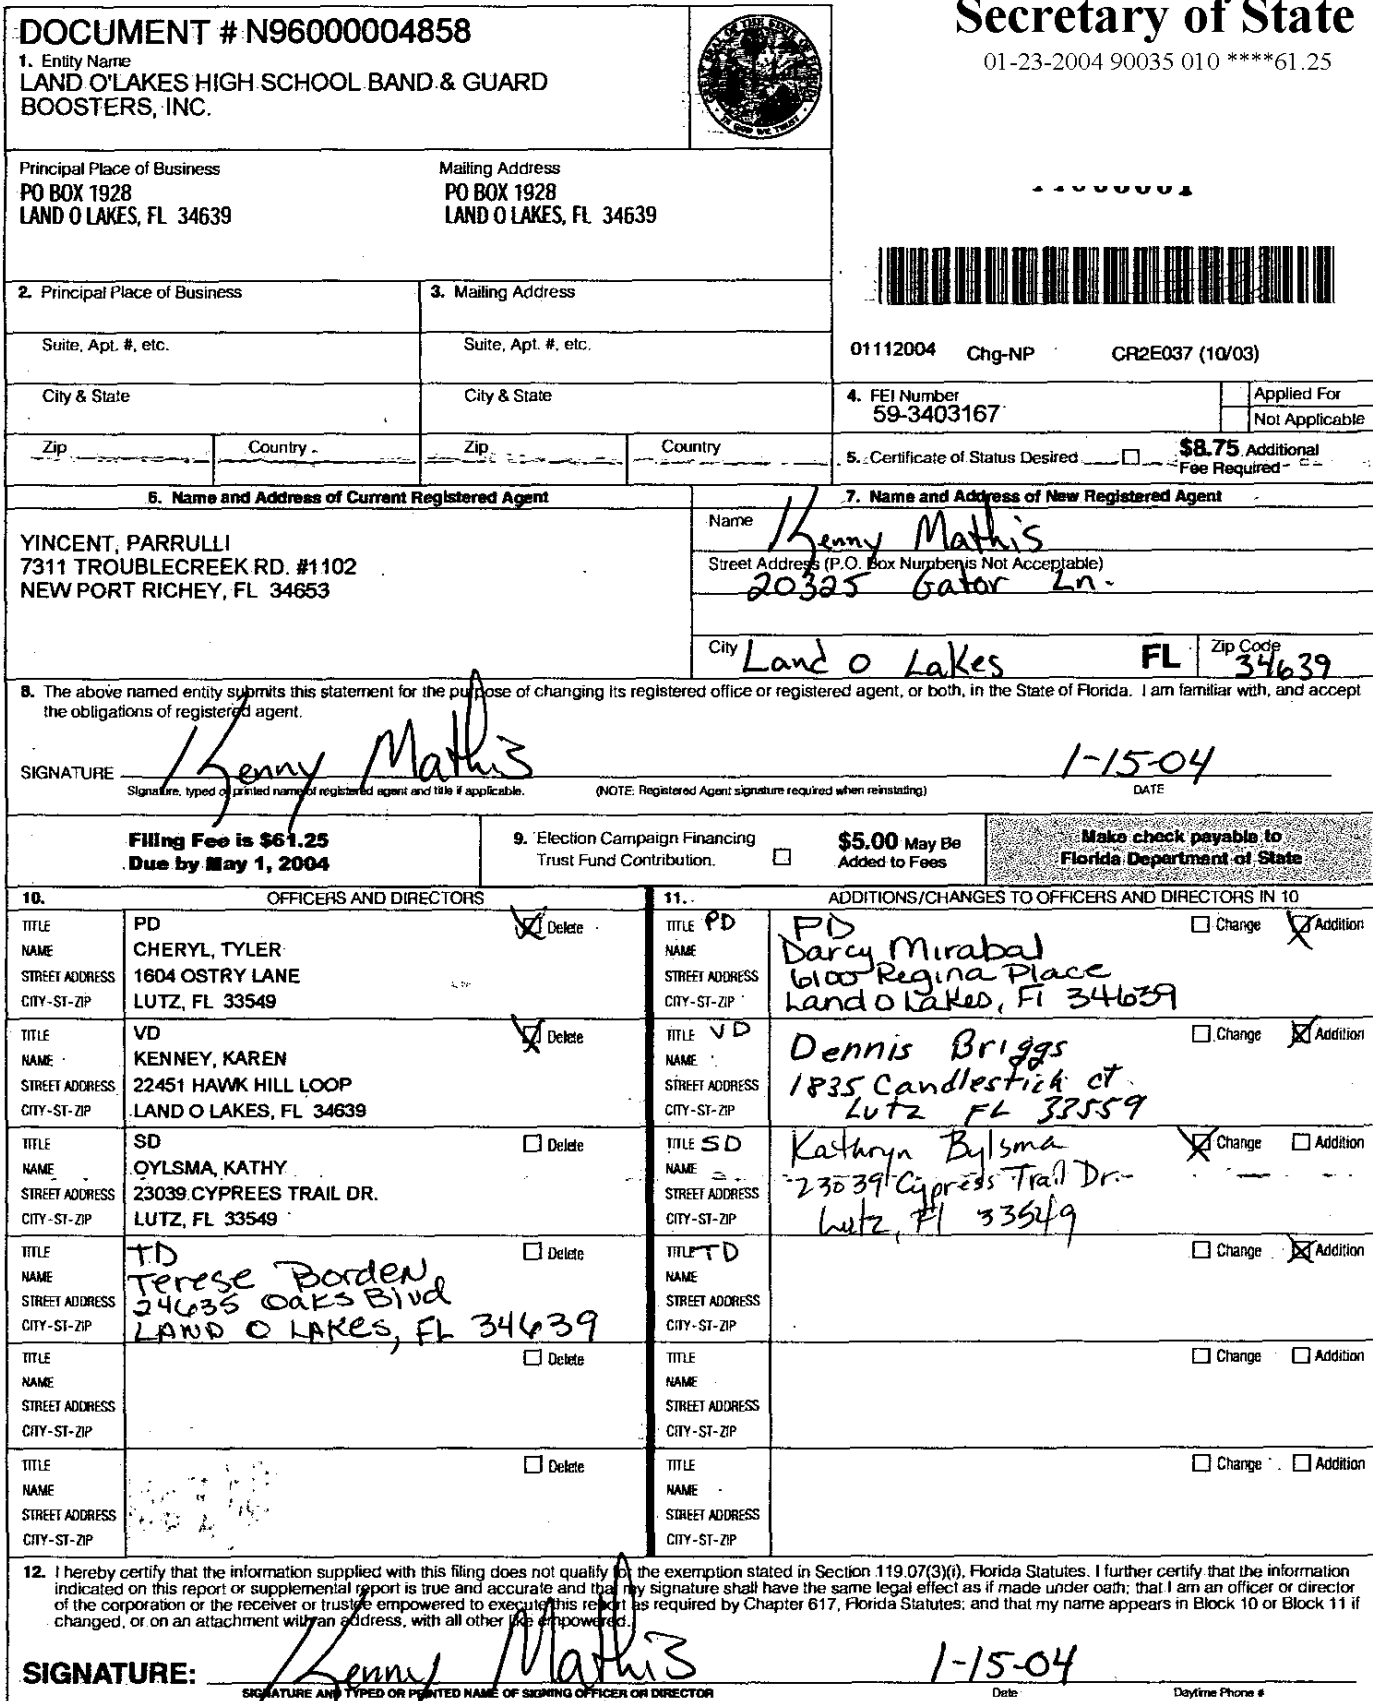 Secretary of State
01-23-2004 90035 010 ****61.25
DOCUMENT # N96000004858
1. Entity Name
LAND O'LAKES HIGH SCHOOL BAND & GUARD
BOOSTERS, INC.
Principal Place of Business
PO BOX 1928
LAND O LAKES, FL 34639
Mailing Address
PO BOX 1928
LAND O LAKES, FL 34639
2. Principal Place of Business
3. Mailing Address
Suite, Apt. #, etc.
Suite, Apt. #, etc.
City & State
City & State
Zip
Country
Zip
Country
01112004 Chg-NP CR2E037 (10/03)
4. FEI Number
59-3403167
Applied For
Not Applicable
5. Certificate of Status Desired
$8.75 Additional
Fee Required
6. Name and Address of Current Registered Agent
YINCENT, PARRULLI
7311 TROUBLECREEK RD. #1102
NEW PORT RICHEY, FL 34653
7. Name and Address of New Registered Agent
Name Kenny Mathis
Street Address (P.O. Box Number is Not Acceptable)
20325 Gator Ln.
City Land O Lakes FL Zip Code 34639
8. The above named entity submits this statement for the purpose of changing its registered office or registered agent, or both, in the State of Florida. I am familiar with, and accept
the obligations of registered agent.
SIGNATURE Kenny Mathis 1-15-04
Signature, typed or printed name of registered agent and title if applicable. (NOTE: Registered Agent signature required when reinstating) DATE
Filing Fee is $61.25
Due by May 1, 2004
9. Election Campaign Financing
Trust Fund Contribution.
$5.00 May Be
Added to Fees
Make check payable to
Florida Department of State
10. OFFICERS AND DIRECTORS
TITLE PD Delete
NAME CHERYL, TYLER
STREET ADDRESS 1604 OSTRY LANE
CITY-ST-ZIP LUTZ, FL 33549
TITLE VD Delete
NAME KENNEY, KAREN
STREET ADDRESS 22451 HAWK HILL LOOP
CITY-ST-ZIP LAND O LAKES, FL 34639
TITLE SD Delete
NAME OYLSMA, KATHY
STREET ADDRESS 23039 CYPREES TRAIL DR.
CITY-ST-ZIP LUTZ, FL 33549
TITLE TD Delete
NAME Terese Borden
STREET ADDRESS 24635 Oaks Blvd
CITY-ST-ZIP LAND O LAKES, FL 34639
TITLE Delete
NAME
STREET ADDRESS
CITY-ST-ZIP
TITLE Delete
NAME
STREET ADDRESS
CITY-ST-ZIP
11. ADDITIONS/CHANGES TO OFFICERS AND DIRECTORS IN 10
TITLE PD PD Change Addition
NAME Darcy Mirabal
STREET ADDRESS 6100 Regina Place
CITY-ST-ZIP Land O Lakes, Fl 34639
TITLE VD Change Addition
NAME Dennis Briggs
STREET ADDRESS 1835 Candlestick ct
CITY-ST-ZIP Lutz FL 33559
TITLE SD Change Addition
NAME Kathryn Bylsma
STREET ADDRESS 23039 Cypress Trail Dr.
CITY-ST-ZIP Lutz, Fl 33549
TITLE TD Change Addition
NAME
STREET ADDRESS
CITY-ST-ZIP
TITLE Change Addition
NAME
STREET ADDRESS
CITY-ST-ZIP
TITLE Change Addition
NAME
STREET ADDRESS
CITY-ST-ZIP
12. I hereby certify that the information supplied with this filing does not qualify for the exemption stated in Section 119.07(3)(i), Florida Statutes. I further certify that the information
indicated on this report or supplemental report is true and accurate and that my signature shall have the same legal effect as if made under oath; that I am an officer or director
of the corporation or the receiver or trustee empowered to execute this report as required by Chapter 617, Florida Statutes; and that my name appears in Block 10 or Block 11 if
changed, or on an attachment with an address, with all other like empowered.
SIGNATURE: Kenny Mathis 1-15-04
SIGNATURE AND TYPED OR PRINTED NAME OF SIGNING OFFICER OR DIRECTOR Date Daytime Phone #